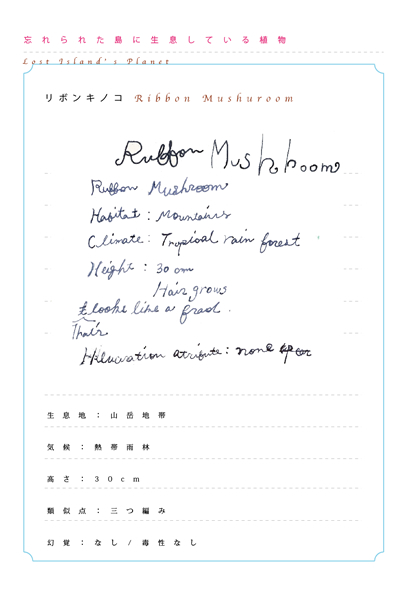 忘れられた島に生息している植物
Lost Island's Planet
リボンキノコ Ribbon Mushuroom
Ribbon Mushroom
Ribbon Mushroom
Habitat : Mountains
Climate : Tropical rain forest
Height : 30 cm
Hair grows
looks like a
Hair
atribute : none
生息地：山岳地帯
気候：熱帯雨林
高さ：30cm
類似点：三つ編み
幻覚：なし/毒性なし